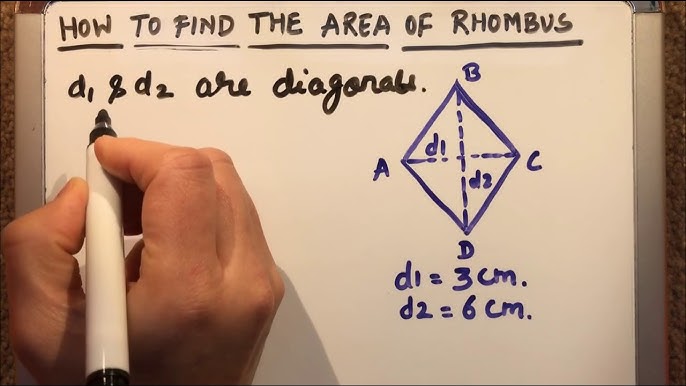 HOW TO FIND THE AREA OF RHOMBUS
d1 & d2 are diagonals.
B
d1
A
C
d2
D
d1 = 3 cm.
d2 = 6 cm.